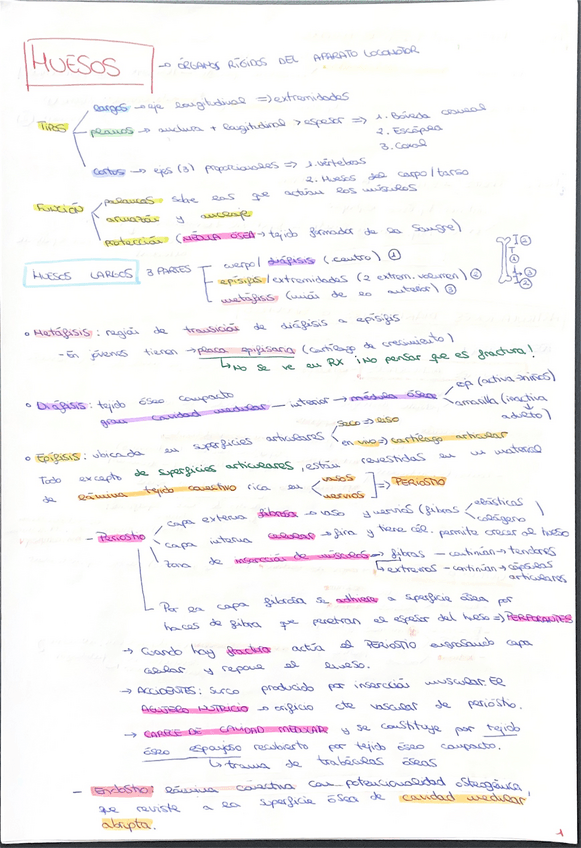 HUESOS → ÓRGANOS RÍGIDOS DEL APARATO LOCOMOTOR
largos → eje longitudinal => extremidades
TIPOS planos → anchura + longitudinal > espesor => 1. Bóveda craneal
2. Escápula
3. Coxal
cortos → ejes (3) proporcionales => 1. vértebras
2. Huesos del carpo/tarso
FUNCIÓN palancas sobre las que actúan los músculos
armazón y anclaje
protección (MÉDULA ÓSEA → tejido formador de la sangre)
HUESOS LARGOS 3 PARTES cuerpo/diáfisis (centro) ①
epífisis/extremidades (2 extrem. volumen) ②
metáfisis (unión de lo anterior) ③
• Metáfisis: región de transición de diáfisis a epífisis
- En jóvenes tienen → placa epifisaria (cartílago de crecimiento)
↳ No se ve en RX ¡No pensar que es fractura!
• Diáfisis: tejido óseo compacto
gran cavidad medular — interior → médula ósea roja (activa → niños)
amarilla (inactiva ↓ adulto)
• Epífisis: ubicada en superficies articulares seco => liso
en vivo => cartílago articular
Todo excepto de superficies articulares, están revestidas en un material
de lámina tejido conectivo rica en vasos nervios => PERIOSTIO
- Periostio capa externa fibrosa → vaso y nervios (fibras elásticas colágeno)
capa interna celular → fina y tiene cél. permite crecer al hueso
Zona de inserción de músculos → fibras - continúan → tendones
↳ extremos - continúan → cápsulas articulares
Por la capa fibrosa se adhiere a superficie ósea por
haces de fibra que penetran el espesor del hueso => PERFORANTES
→ Cuando hay fractura actúa el PERIOSTIO engrosando capa
celular y repone el hueso.
→ ACCIDENTES: surco producido por inserción muscular. El
AGUJERO NUTRICIO → orificio cte vascular de periostio.
→ CARECE DE CAVIDAD MEDULAR y se constituye por tejido
óseo esponjoso recubierto por tejido óseo compacto.
↳ trama de trabéculas óseas
- Endostio: lámina conectiva con potencionalidad osteogénica,
que reviste a la superficie ósea de cavidad medular
abrupta.
1